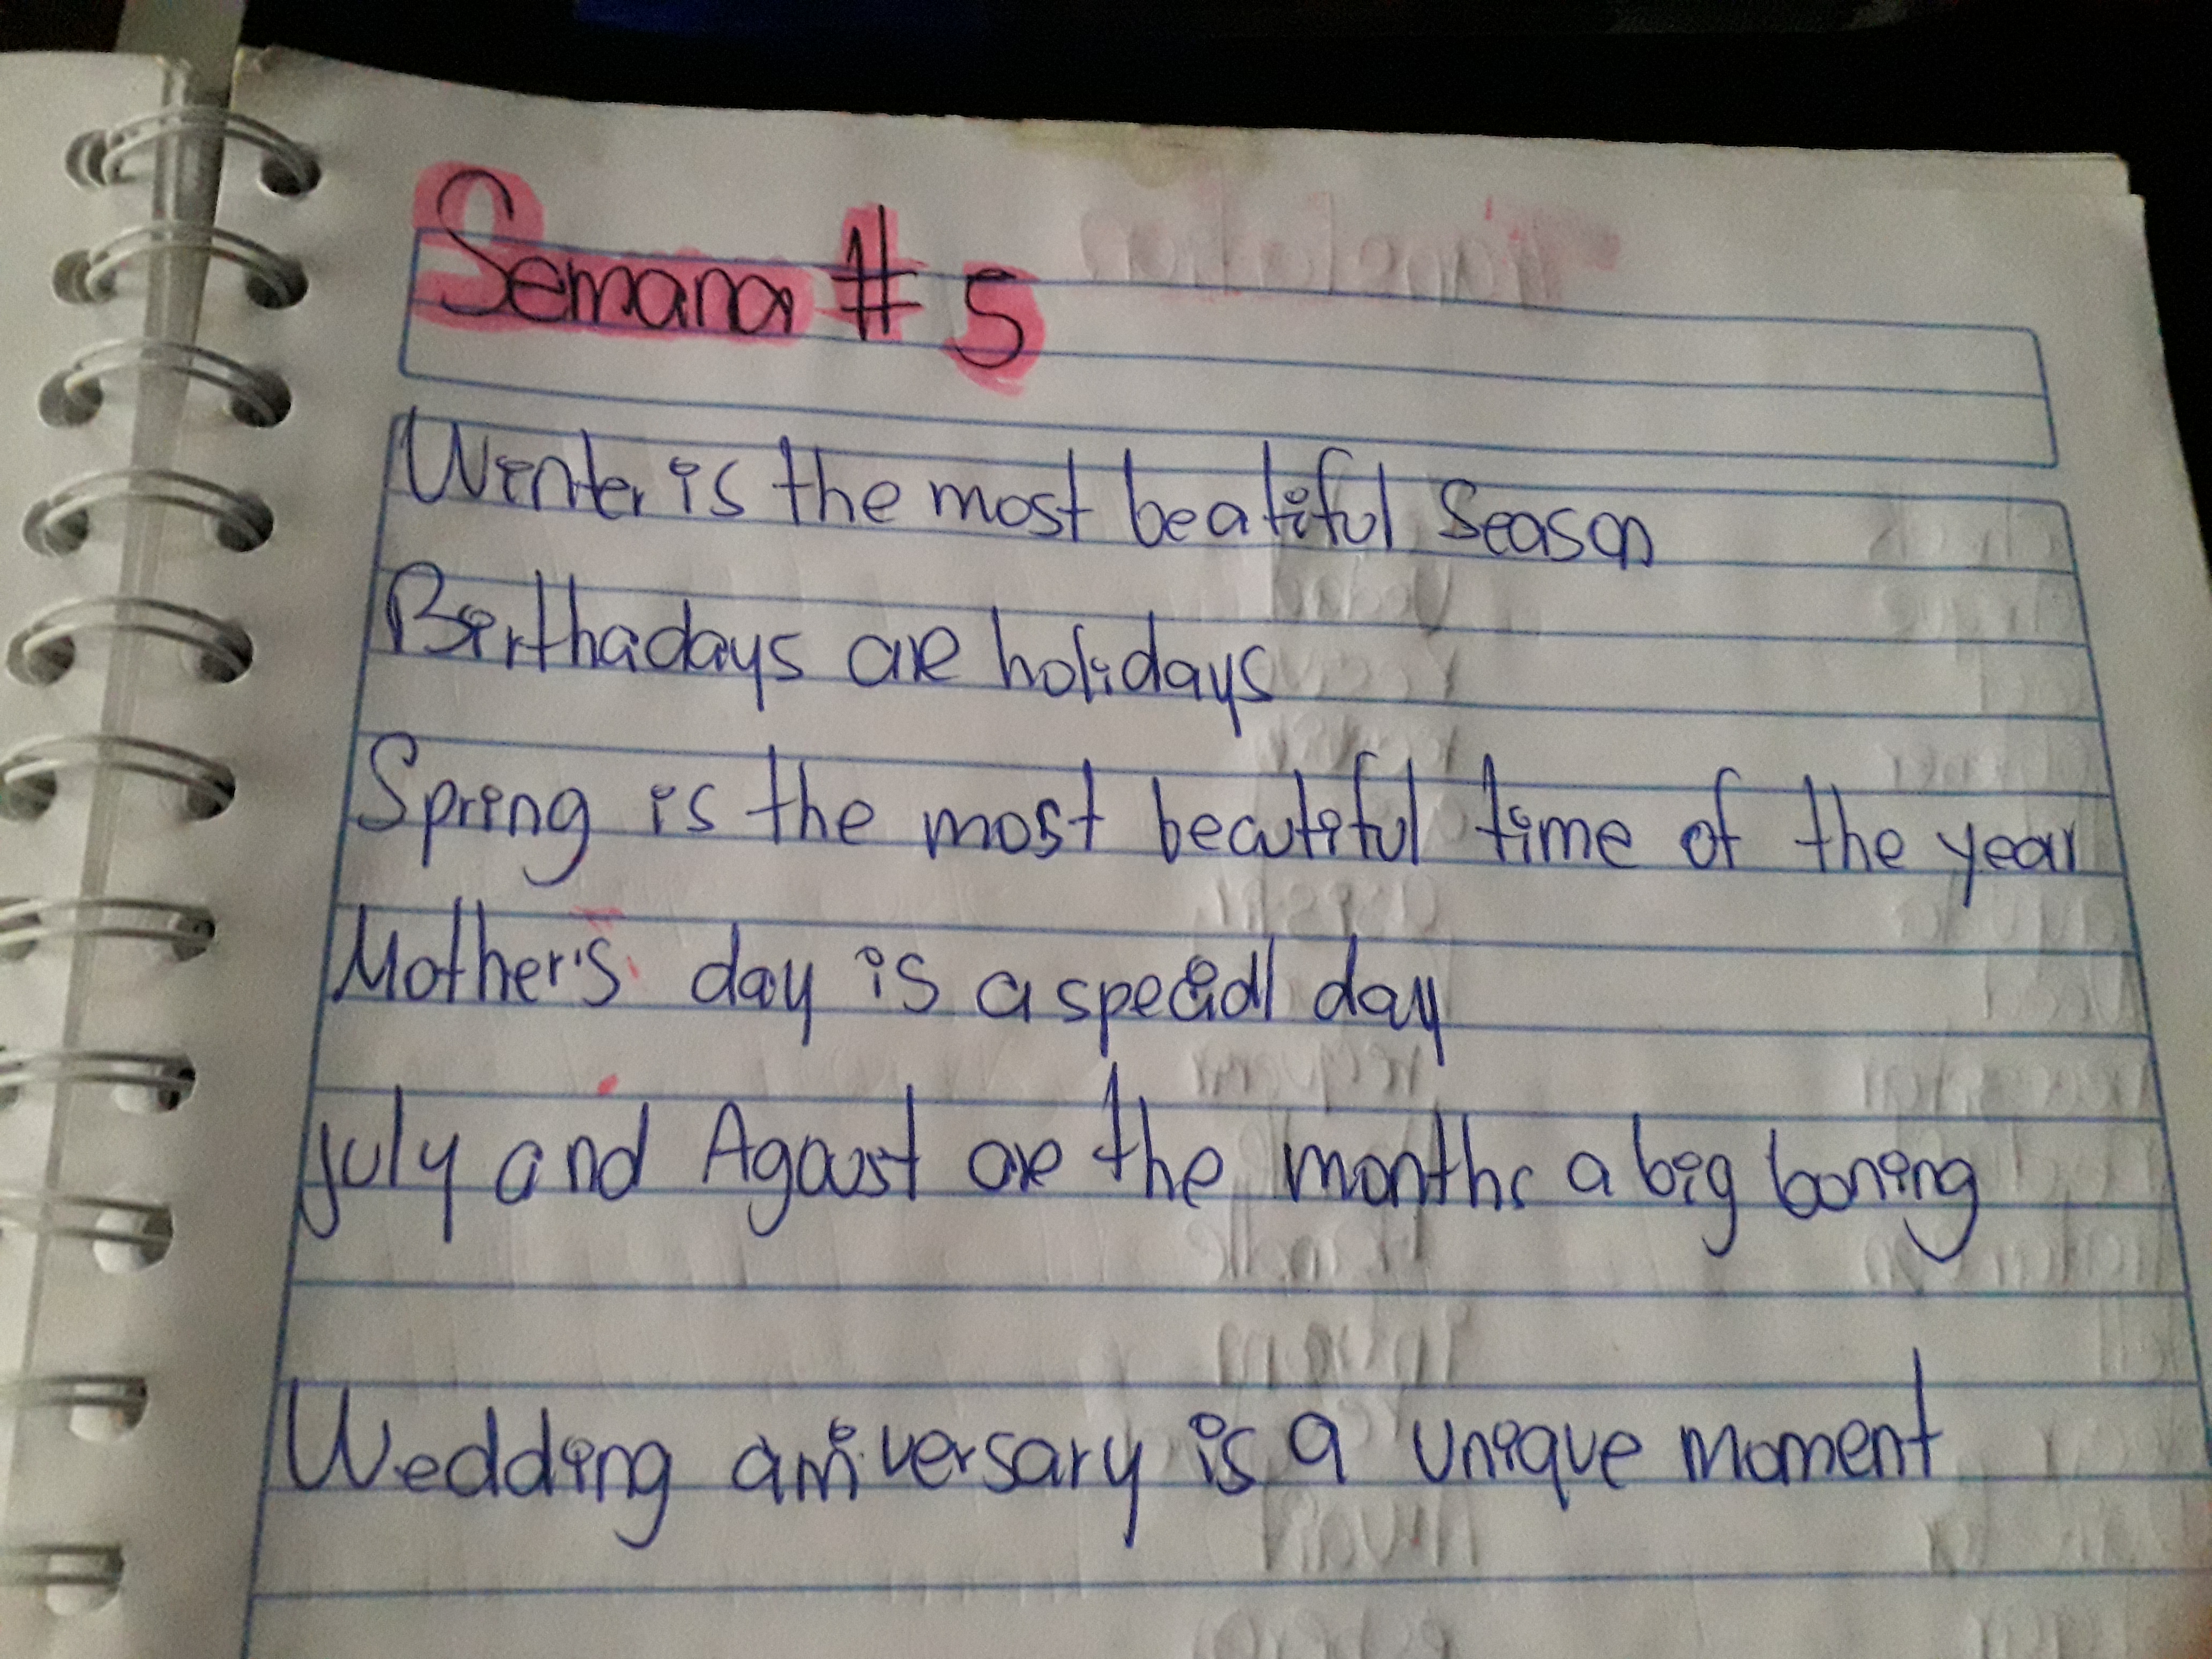 Semana # 5
Winter is the most beatiful Season
Birthadays are holidays
Spring is the most beautiful time of the year
Mother's day is a special day
july and Agoust are the months a big boring
Wedding anniversary is a unique moment